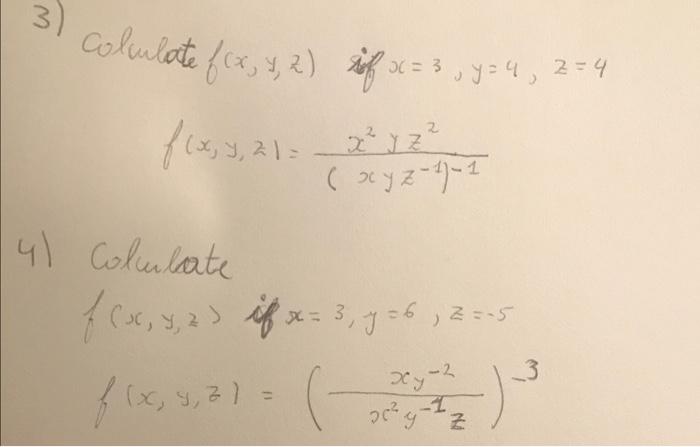 3)
Calculate f(x, y, z) if x = 3, y = 4, z = 4
f(x, y, z) = x² y z² / (x y z⁻¹)⁻¹
4) Calculate
f(x, y, z) if x = 3, y = 6, z = -5
f(x, y, z) = (xy⁻² / x² y⁻¹ z)⁻³